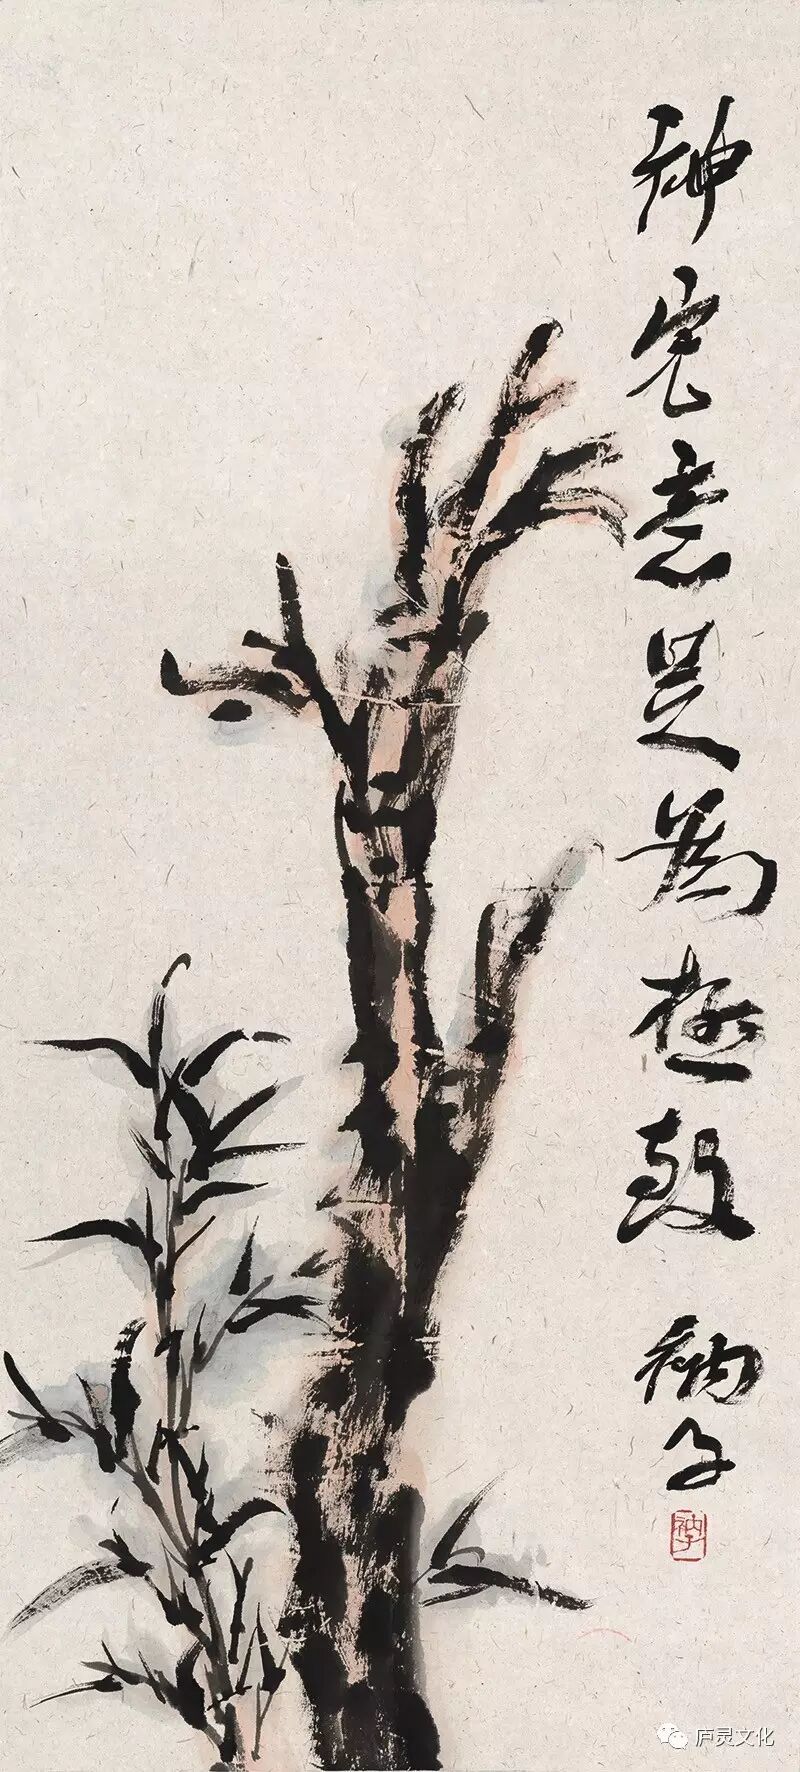 神完意足为极致
衲子
衲子
庐灵文化